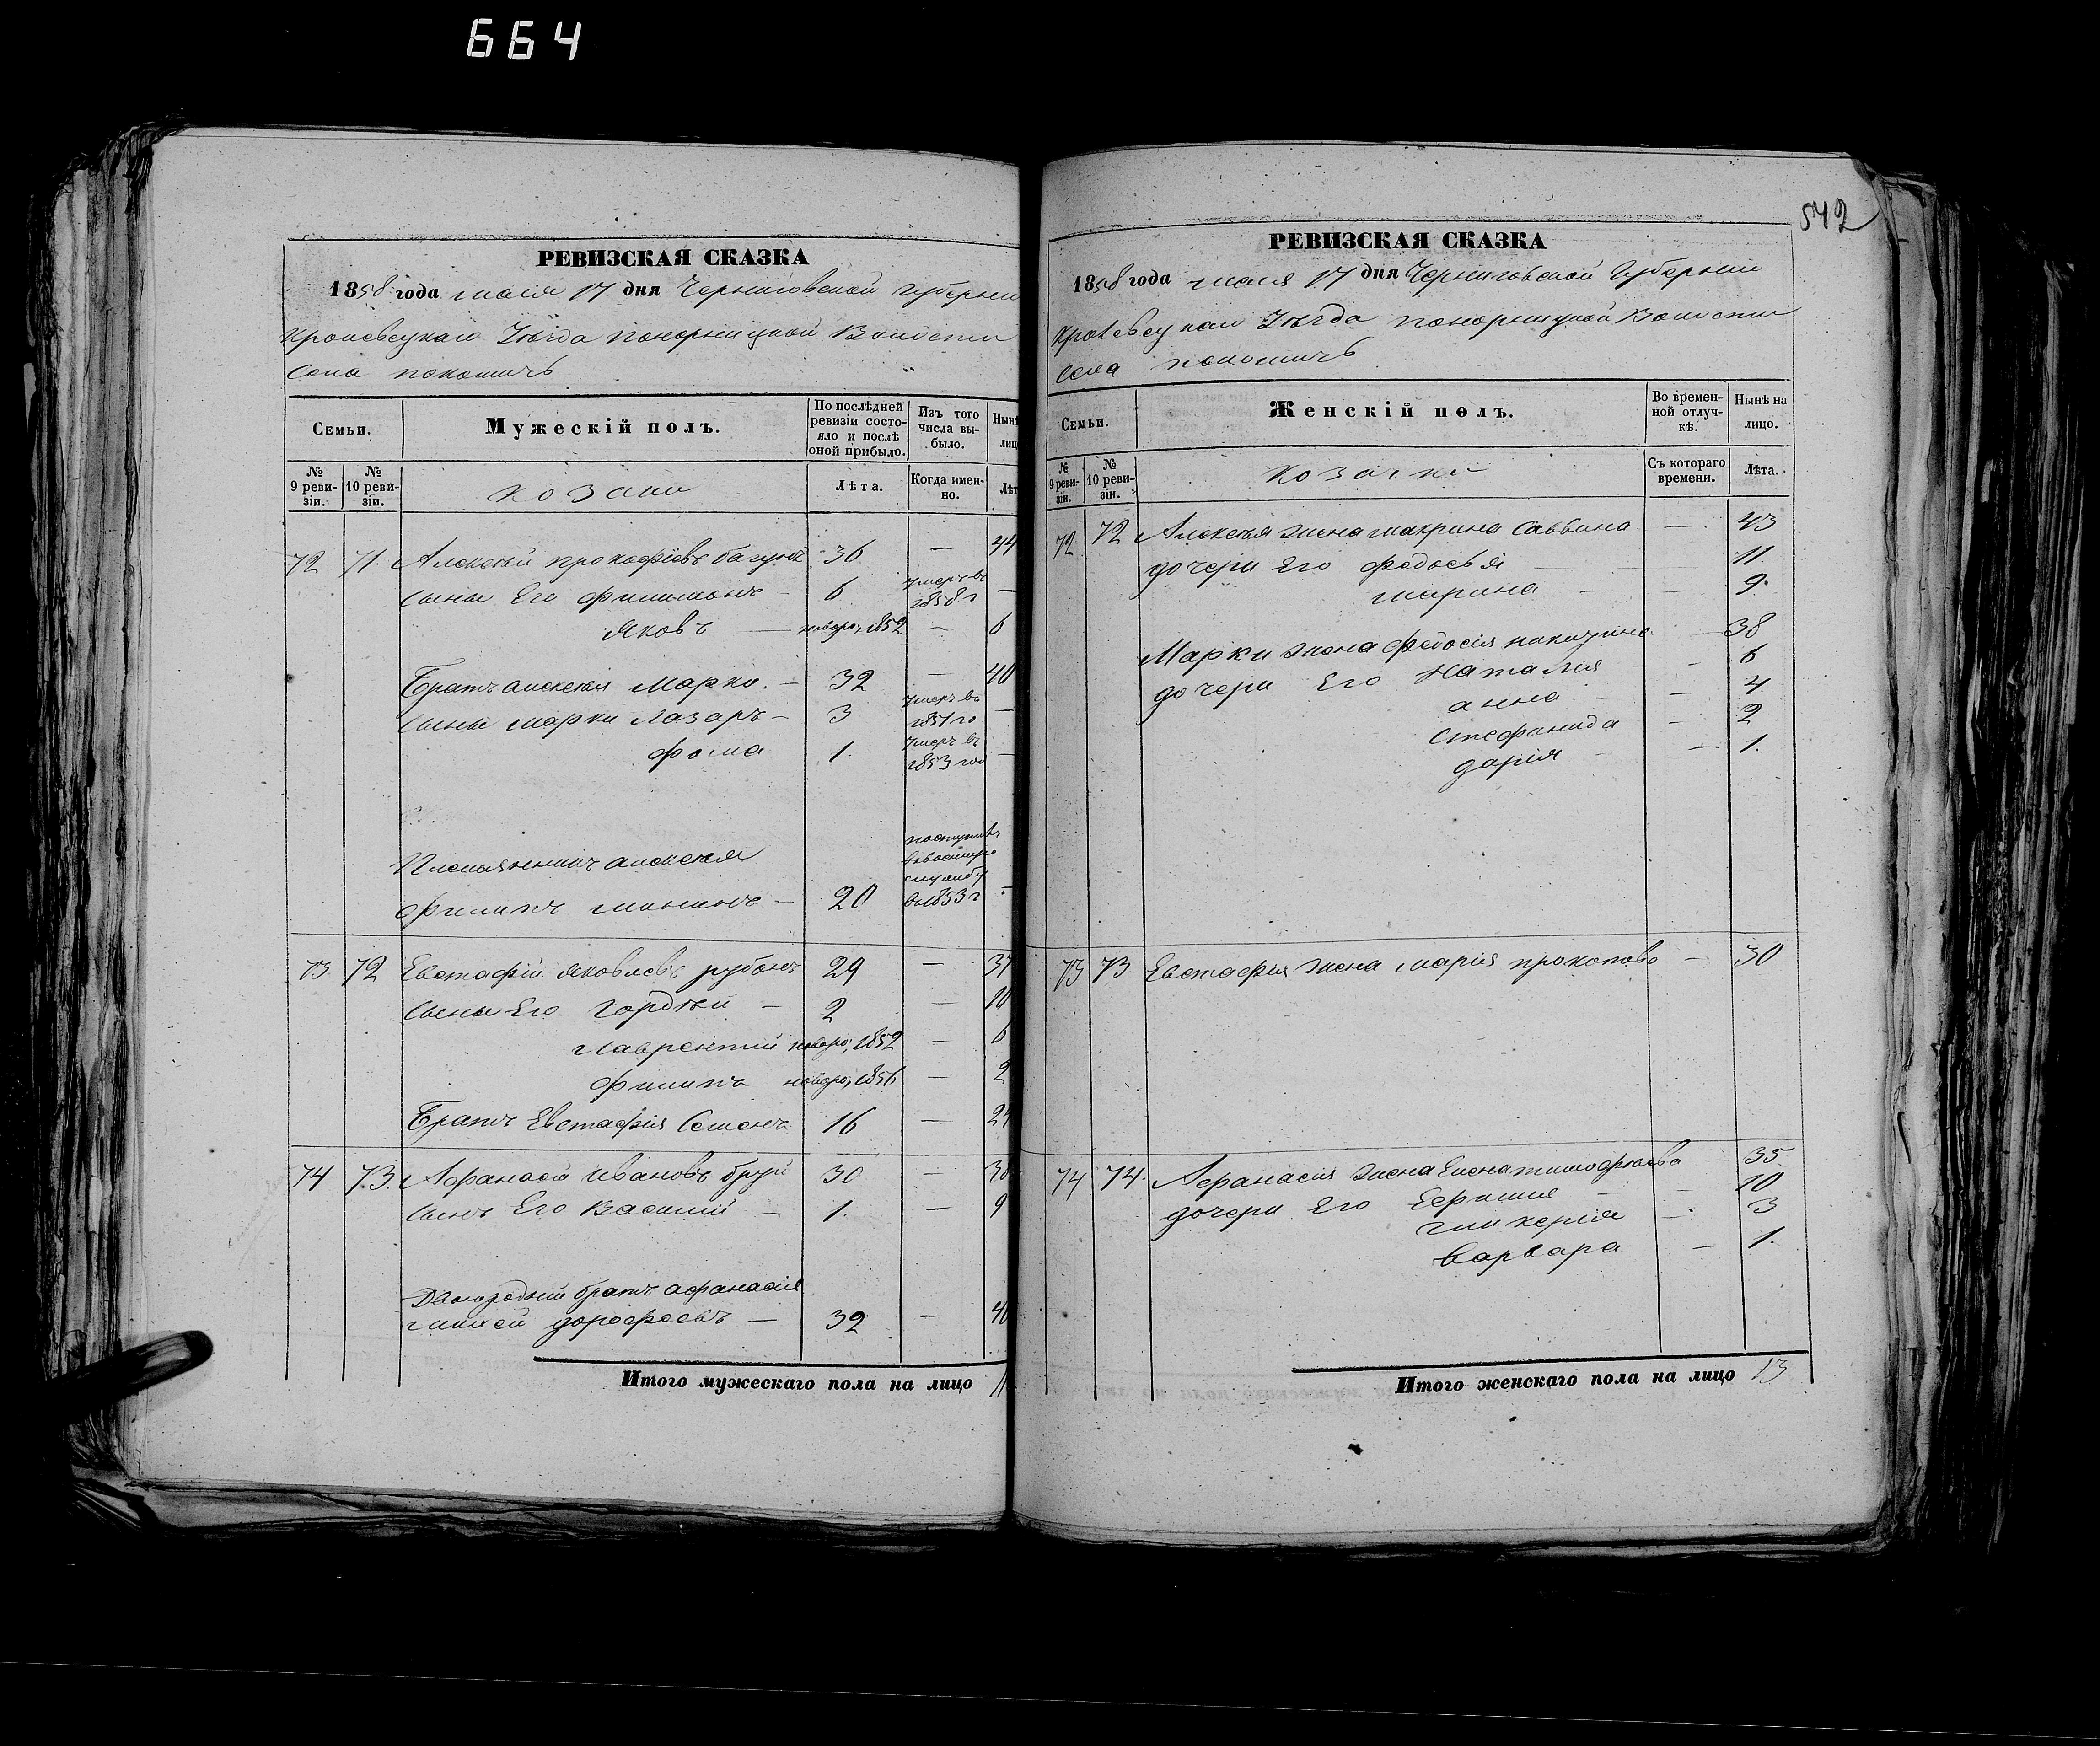 664
РЕВИЗСКАЯ СКАЗКА
1858 года мая 17 дня Черниговской Губерни
Кролевецкаго Уѣзда Понорницкой Волости
Села Покошичъ
Семьи.
Мужескій полъ.
По послѣдней ревизіи состояло и послѣ оной прибыло.
Изъ того числа выбыло.
Нынѣ лиц
№ 9 ревизіи.
№ 10 ревизіи.
козаки
Лѣта.
Когда именно.
Лѣт
72 71. Алексѣй прокофіевъ 36 — 44
сыны Его филимонъ — 6 умеръ въ 1858 г —
Яковъ — новоро, 1852 — 6
Братъ алексѣя Марко. — 32 — 40
сыны марки Лазаръ — 3 умеръ въ 1851 го —
фома 1. умеръ въ 1853 год —
Племянникъ алексѣя
филипъ — 20 поступивъ службу въ 1853 г —
73 72 Евстафій Яковлевъ рубанъ 29 — 37
сыны Его Гордѣй — 2 — 10
Лаврентій новоро, 1852 — 6
филипъ новоро, 1856 — 2
Братъ Евстафія Семенъ 16 — 24
74 73. Афанасій Ивановъ 30 — 38
сынъ Его Василій — 1. — 9
Двоюродный братъ афанасія
дорофеевъ — 32 — 40
Итого мужескаго пола на лицо 11
542
РЕВИЗСКАЯ СКАЗКА
1858 года мая 17 дня Черниговской Губерніи
Кролевецкаго Уѣзда Понорницкой Волости
Села Покошичъ
Семьи.
Женскій полъ.
Во временной отлучкѣ.
Нынѣ на лицо.
№ 9 ревизіи.
№ 10 ревизіи.
козачки
Съ котораго времени.
Лѣта.
72 72 Алексѣя жена макрина Саввина — 43
дочери Его федосья — 11.
марина — 9.
Марки жена федосія никитина — 38
дочери Его Наталія — 6
анна — 4
стефанида — 2
дарія — 1.
73 73 Евстафія жена марія прокопова — 30
74 74. Афанасія жена Елена тимофеева — 35
дочери Его — 10
гликерія — 3
варвара — 1.
Итого женскаго пола на лицо 13